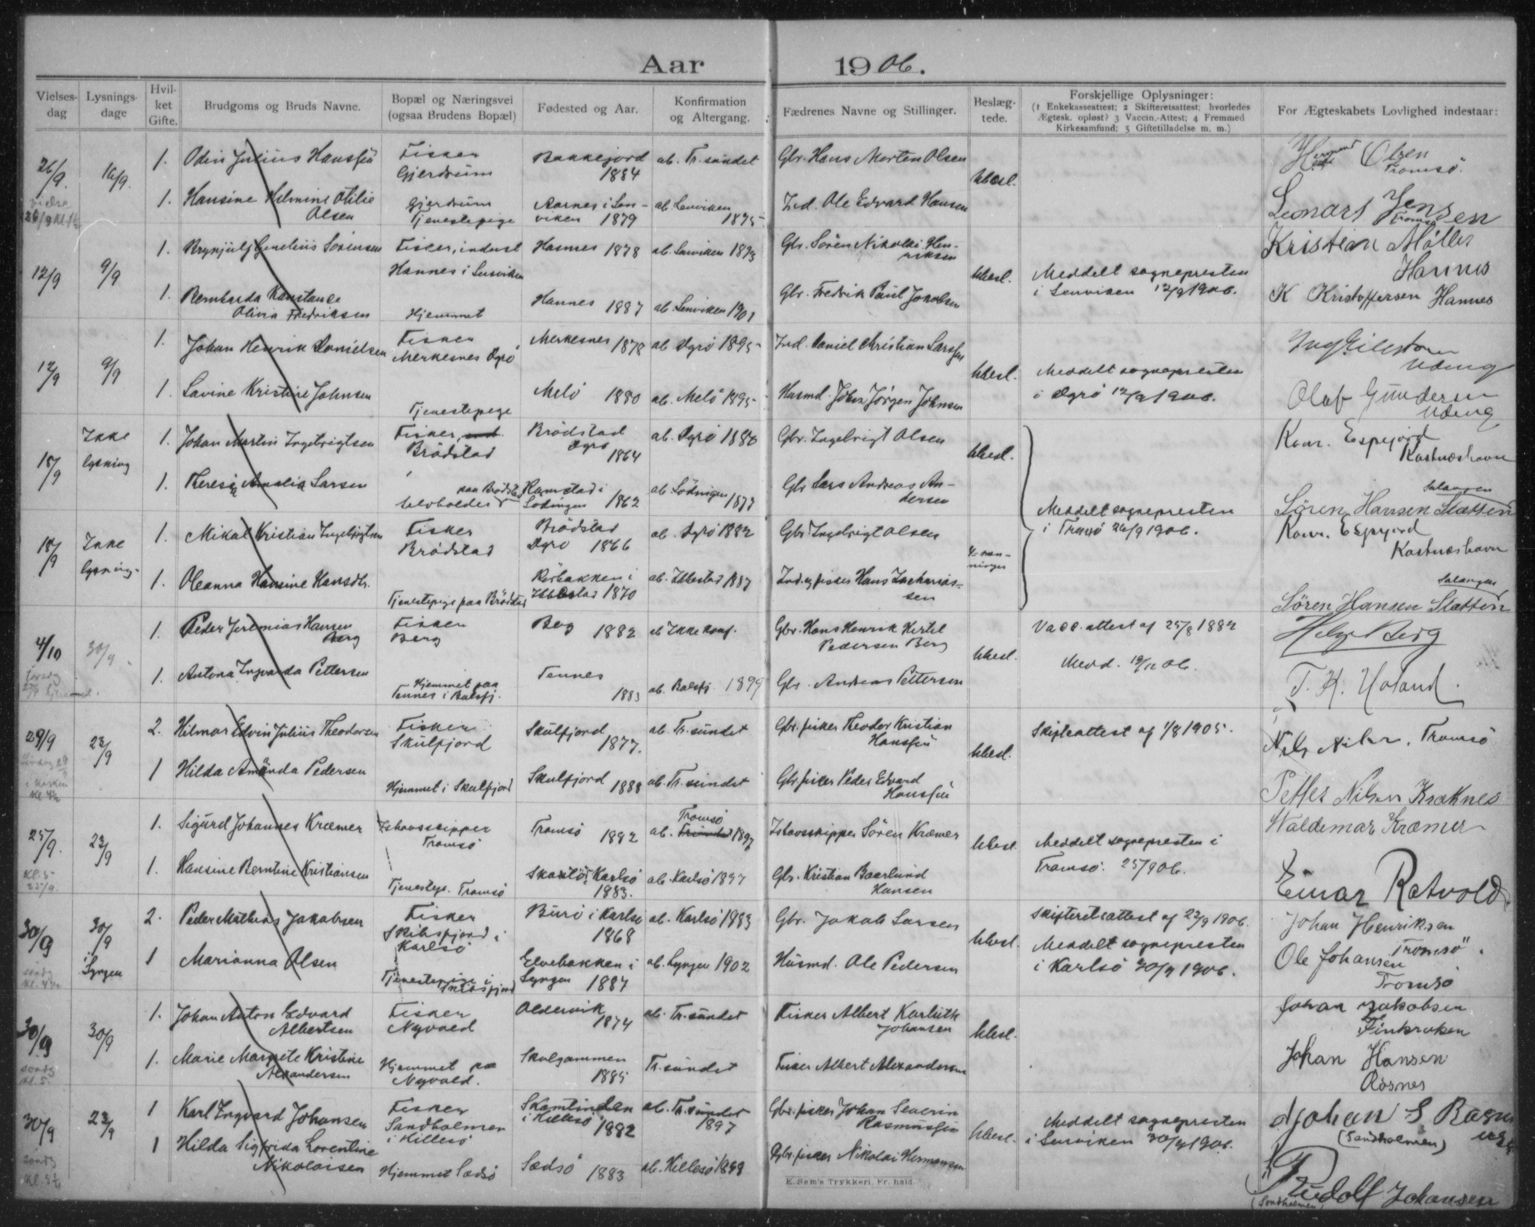 Aar 1906.
Vielses-dag Lysnings-dage Hvil-ket Gifte. Brudgoms og Bruds Navne. Bopæl og Næringsvei (ogsaa Brudens Bopæl) Fødested og Aar. Konfirmation og Altergang. Fædrenes Navne og Stillinger. Beslæg-tede. Forskjellige Oplysninger: (1 Enkekasseattest; 2 Skifteretsattest; hvorledes Ægtesk. opløst? 3 Vaccin.-Attest; 4 Fremmed Kirkesamfund; 5 Giftetilladelse m. m.) For Ægteskabets Lovlighed indestaar:
26/9 16/9 1. Odin Julius Hansen Fisker Gjerdrum Bakkejord 1884 ab. Tr.sundet Gbr. Hans Morten Olsen Ubesl. Olsen Tromsö.
1. Hansine Helmine Otilie Olsen Gjerdrum Tjenestepige Aarnes i Lenviken 1879 ab Lenviken 1895 Ind. Ole Edvard Hansen Lenart Jensen Tromsö
12/9 9/9 1. Brynjulf Cornelius Sörensen Fisker, inderst Hannes i Lenviken Hannes 1878 ab Lenviken 1893 Gbr. Sören Nikolai Henriksen Ubesl. Meddelt sognepresten i Lenviken 12/9 1906. Kristian Möller Hannes
1. Bernharda Konstance Olivia Fredriksen Hjemmet Hannes 1887 ab Lenviken 1901 Gbr. Fredrik Paul Jakobsen K Kristoffersen Hannes
12/9 9/9 1. Johan Henrik Danielsen Fisker Merkesnes Dyrö Merkesnes 1878 ab Dyrö 1895 Ind. Daniel Christian Larsen Ubesl. Meddelt sognepresten i Dyrö 12/9 1906.
1. Lavine Kristine Johnsen Tjenestepige Melö 1880 ab. Melö 1895 Husmd. Johan Jörgen Johnsen Olaf Gundersen
18/9 Ikke lysning 1. Johan Martin Ingebrigtsen Fisker, Brödstad Brödstad Dyrö 1864 ab. Dyrö 1880 Gbr. Ingebrigt Olsen Ubesl. Konr. Espejord Kastneshavn
1. Amalia Larsen paa Brödstad Hamstad i Lödingen 1862 ab Lödingen 1877 Gbr Lars Andreas Andersen Meddelt sognepresten i Tromsö 26/9 1906. Sören Hansen Slatten Salangen
18/9 Ikke lysning 1. Mikal Kristian Ingebrigtsen Fisker Brödstad Brödstad Dyrö 1866 ab. Dyrö 1882 Gbr. Ingebrigt Olsen Konr. Espejord Kastneshavn
1. Oleanna Hansine Hansdtr. Tjenestepige paa Brödstad i Ibbestad 1870 ab. Ibbestad 1887 Ind. og fisker Hans Zachariassen Sören Hansen Slatten Salangen
4/10 30/9 1. Peder Jeremias Hansen Berg Fisker Berg Berg 1882 ab Ikke konf. Gbr. Hans Henrik Kertil Pedersen Berg Ubesl. Vacc. attest af 25/8 1882 Helge Berg
1. Antona Ingvarda Pettersen Hjemmet paa Tennes i Balsfj. Tennes 1883 ab. Balsfj. 1899 Gbr. Andreas Pettersen Medd. 19/11 06. T. H. Holand.
29/9 23/9 2. Hilmar Edvin Julius Theodorsen Fisker Skulfjord Skulfjord 1877. ab. Tr.sundet Gbr. fisker Theodor Kristian Hansen Ubesl. Skifteattest af 1/8 1905. Nils Nilsen. Tromsö
1 Hilda Amanda Pedersen Hjemmet i Skulfjord Skulfjord 1888 ab Tr.sundet Gbr. fisker Peder Edvard Hansen Petter Nilsen Kræknes
25/9. 23/9 1. Sigurd Johannes Kræmer Ishavsskipper Tromsö Tromsö 1882 ab. Tromsö 1897 Ishavsskipper Sören Kræmer Ubesl. Meddelt sognepresten i Tromsö. 25/9 06. Waldemar Kræmer
1. Hansine Berntine Kristiansen Tjenestepg. Tromsö Karlsö 1883. ab Karlsö 1897 Gbr. Kristian Baarlund Hansen Einar Rotvold
30/9 30/9 i Lyngen 2. Peder Mathias Jakobsen Fisker Skibsfjord i Karlsö Burö i Karlsö 1868 ab. Karlsö 1883 Gbr. Jakob Larsen Ubesl. Skifteretsattest af 22/9 1906. Johan Henriksen Tromsö
1 Marianna Olsen Tjenestepige i Skibsfjord Elvebakken i Lyngen 1887 ab. Lyngen 1902 Husmd. Ole Pedersen Meddelt sognepresten i Karlsö 30/9 1906. Ole Johansen Tromsö
30/9 30/9 1. Johan Anton Edvard Albertsen Fisker Nyvold Oldervik 1874 ab. Tr.sundet Fisker Albert Johansen Ubesl. Johan Jakobsen Finkroken
1. Marie Margrete Kristine Alexandersen Hjemmet paa Nyvold. Skolgammen 1885 Tr.sundet Fisker Albert Alexandersen Johan Hansen
30/9 23/9 1 Karl Ingvard Johansen Fisker Sandholmen i Hillesö Skamtinden i Hillesö 1882 ab. Tr.sundet 1897 Gbr. fisker Johan Severin Rasmussen Ubesl. Meddelt sognepresten i Lenviken 30/9 1906. Johan S (Sandholmen)
1 Hilda Sigfrida Lorentine Nikolaisen Hjemmet Sædsö Sædsö 1883 ab. Hillesö 1899 Gbr. fisker Nikolai Hermansen Rudolf Johansen (Sandholmen)
E. Sem's Trykkeri, Fr.hald.